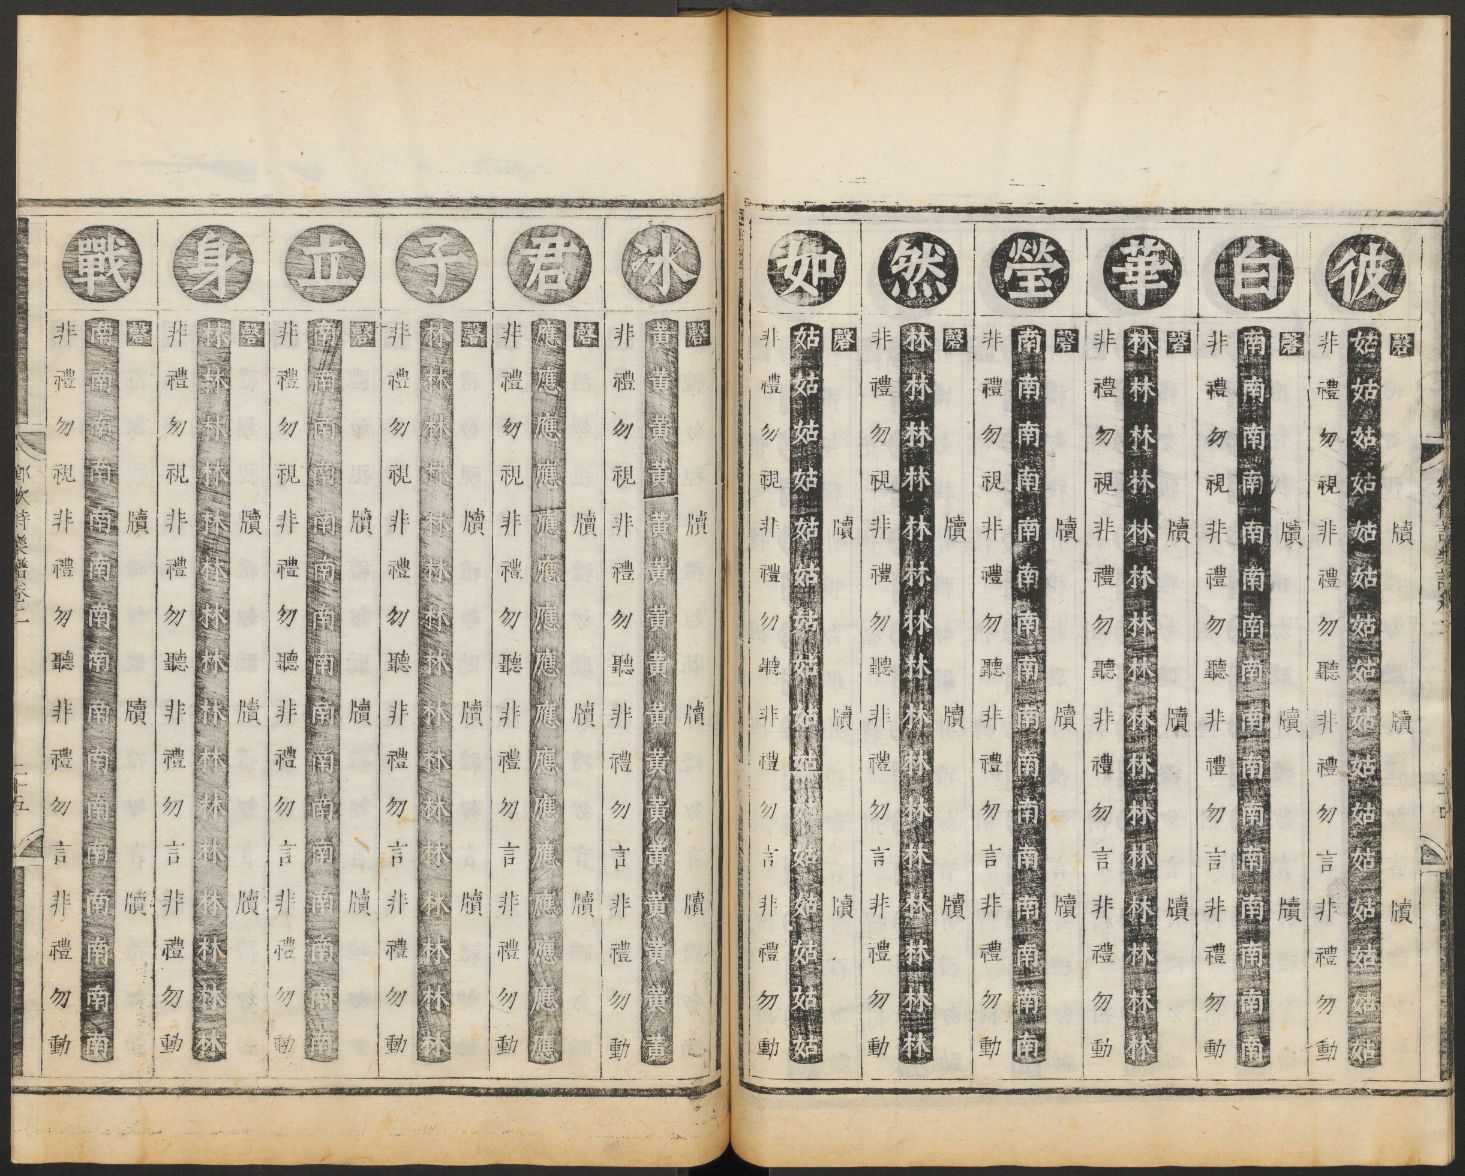 鄉飲詩樂譜卷二 二十四
彼
磬牘牘牘
姑姑姑姑姑姑姑姑姑姑姑姑姑姑姑姑
非禮勿視非禮勿聽非禮勿言非禮勿動
白
磬牘牘牘
南南南南南南南南南南南南南南南南
非禮勿視非禮勿聽非禮勿言非禮勿動
華
磬牘牘牘
林林林林林林林林林林林林林林林林
非禮勿視非禮勿聽非禮勿言非禮勿動
瑩
磬牘牘牘
南南南南南南南南南南南南南南南南
非禮勿視非禮勿聽非禮勿言非禮勿動
然
磬牘牘牘
林林林林林林林林林林林林林林林林
非禮勿視非禮勿聽非禮勿言非禮勿動
如
磬牘牘牘
姑姑姑姑姑姑姑姑姑姑姑姑姑姑姑姑
非禮勿視非禮勿聽非禮勿言非禮勿動
冰
磬牘牘牘
黃黃黃黃黃黃黃黃黃黃黃黃黃黃黃黃
非禮勿視非禮勿聽非禮勿言非禮勿動
君
磬牘牘牘
應應應應應應應應應應應應應應應應
非禮勿視非禮勿聽非禮勿言非禮勿動
子
磬牘牘牘
林林林林林林林林林林林林林林林林
非禮勿視非禮勿聽非禮勿言非禮勿動
立
磬牘牘牘
南南南南南南南南南南南南南南南南
非禮勿視非禮勿聽非禮勿言非禮勿動
身
磬牘牘牘
林林林林林林林林林林林林林林林林
非禮勿視非禮勿聽非禮勿言非禮勿動
戰
磬牘牘牘
南南南南南南南南南南南南南南南南
非禮勿視非禮勿聽非禮勿言非禮勿動
鄉飲詩樂譜卷二 二十五